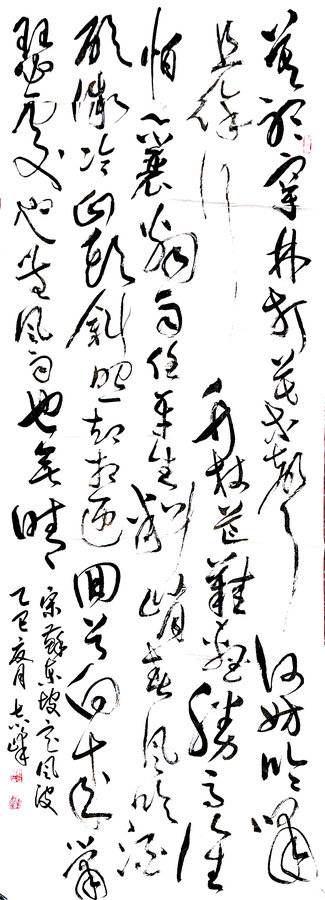 莫聽穿林打葉聲何妨吟嘯
且徐行竹杖芒鞋輕勝馬誰
怕一蓑烟雨任平生料峭春風吹酒
醒微冷山頭斜照却相迎回首向來蕭
瑟處也無風雨也無晴
宋蘇東坡定風波
乙巳夏月志峰